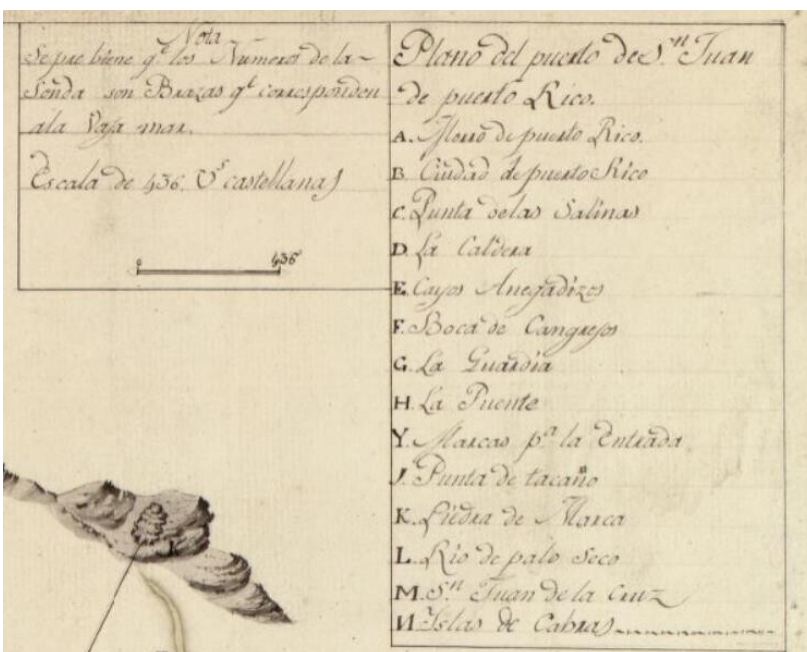 Nota
Se pre biene q.e los Numeros de la
Sonda son Brazas q.e corresponden
ala Vaja mar.
Escala de 436. V.s castellanas
0 436
Plano del puerto de S.n Juan
de puerto Rico.
A. Morro de puerto Rico.
B. Ciudad de puerto Rico
C. Punta delas Salinas
D. La Caldera
E. Cayos Anegadizos
F. Boca de Cangrejos
G. La Guardia
H. La Puente
Y. Marcas p.a la Entrada
J. Punta de tacaño
K. Piedra de Marca
L. Rio de palo Seco
M. S.n Juan de la Cruz
N. Islas de Cabras
K